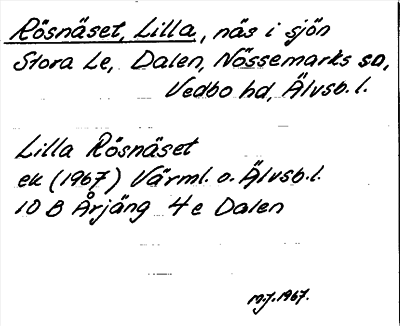 Rösnäset, Lilla, näs i sjön
Stora Le, Dalen, Nössemarks sn,
Vedbo hd, Älvsb. l.
Lilla Rösnäset
ek (1967) Värml. o. Älvsb. l.
10 B Årjäng 4 e Dalen
1967.